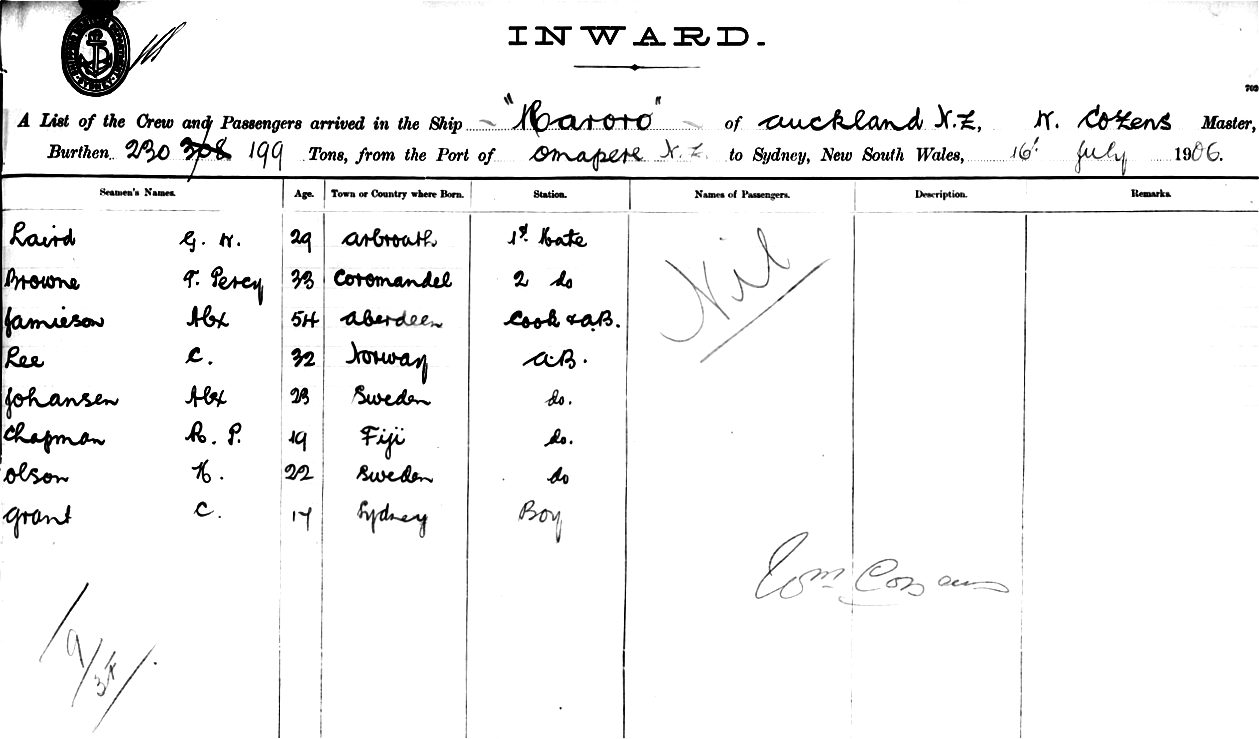 INWARD.
702
A List of the Crew and Passengers arrived in the Ship "Huroro" of Auckland N.Z, W. Cozens Master,
Burthen 230 308 199 Tons, from the Port of Omapere N.Z. to Sydney, New South Wales, 16' July 1906.
Seamen's Names. Age. Town or Country where Born. Station. Names of Passengers. Description. Remarks.
Laird G. W. 29 Arbroath 1st Mate
Browne T. Percy 33 Coromandel 2 do
Jamieson Alex 54 Aberdeen Cook & A.B.
Lee C. 32 Norway A.B.
Johansen Alex 23 Sweden do.
Chapman R. P. 19 Fiji do.
Olson H. 22 Sweden do
Grant C. 17 Sydney Boy
Nil
Wm Cozens
9/34